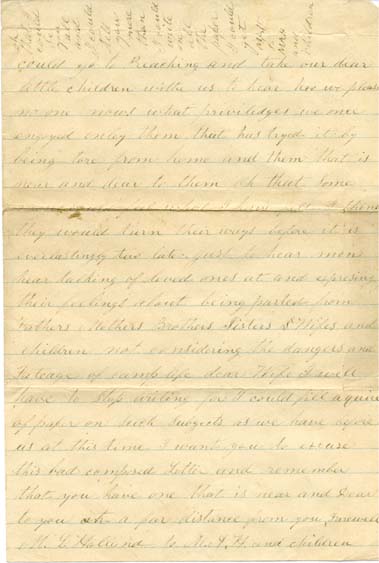 could go to Preaching and take our dear
little children withe us to hear how we please
no one nows what priviledges we once
enjoyed onley them that has tryed it by
being tore from home and them that is
near and dear to them oh that some
they would turn their ways before it is
everlastingly too late just to hear men
hear talking of loved ones at and expresing
their feelings about being parted from
Fathers Mothers Brothers Sisters & Wifes and
children not considering the dangers and
Fateage of camp life dear Wife I will
have to stop writing for I could fill a quire
of paper on such subjects as we have before
us at this time I want you to excuse
this bad composed Letter and remember
that you have one that is near and Dear
to you at a far distance from you Farewell
M. L. Holland to M. A. H. and children